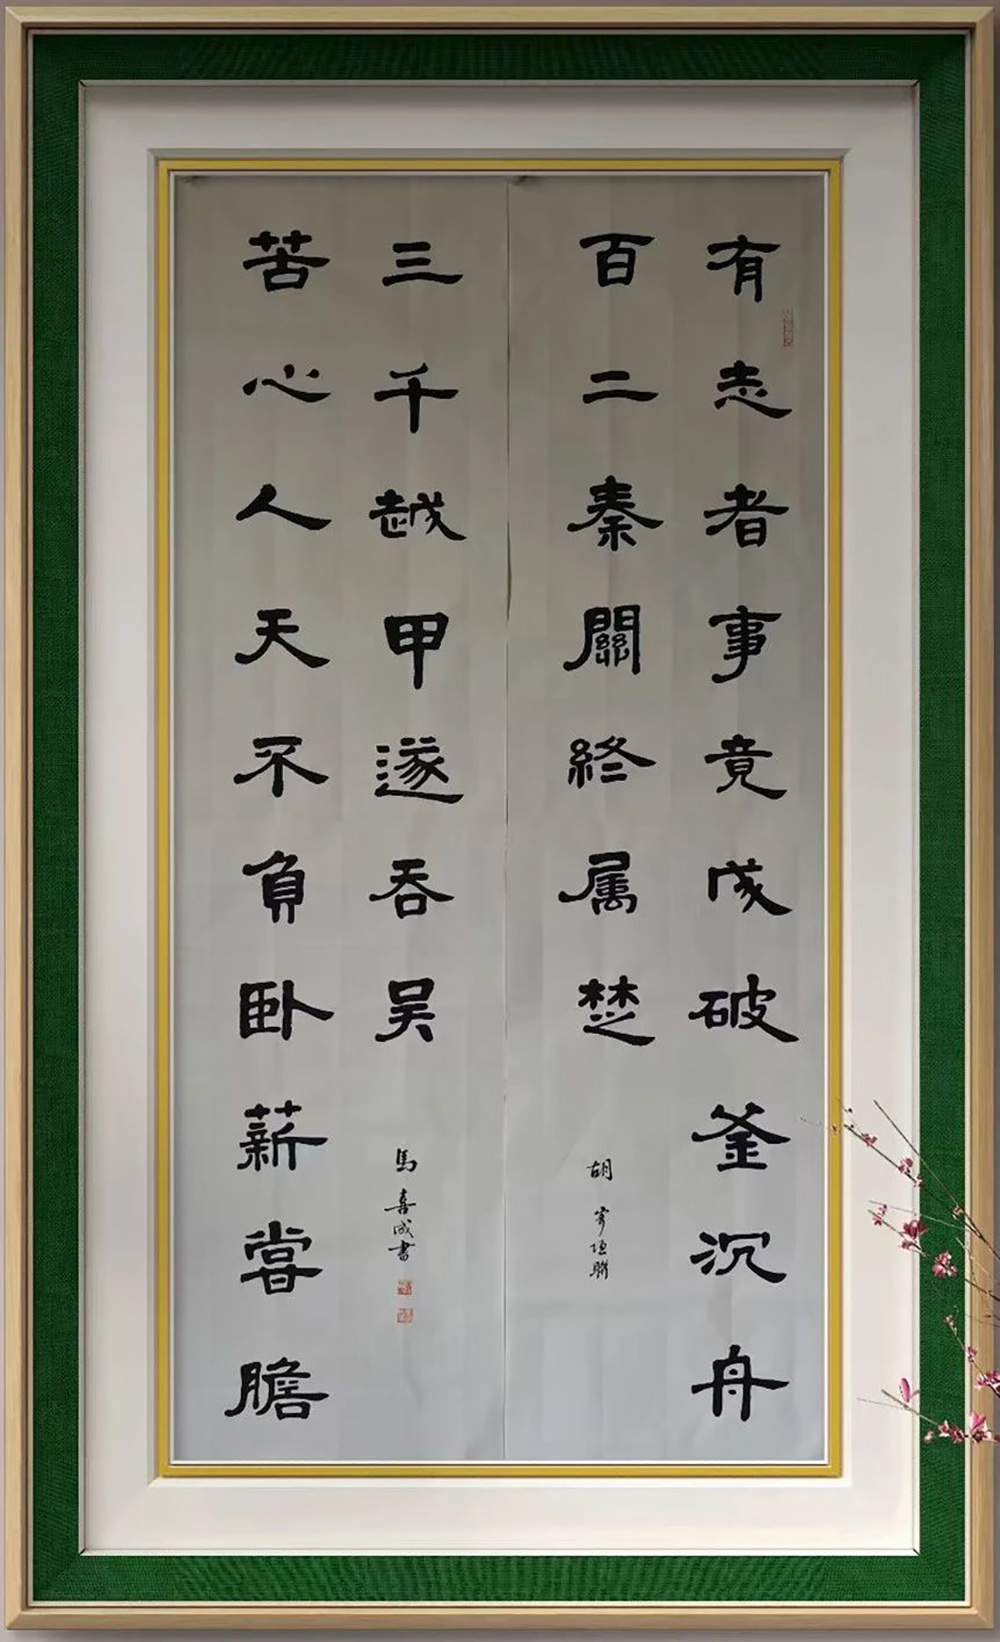 有志者事竟成破釜沉舟
百二秦關終属楚
胡寄垣聯
苦心人天不負卧薪嘗膽
三千越甲遂吞吴
馬喜成書